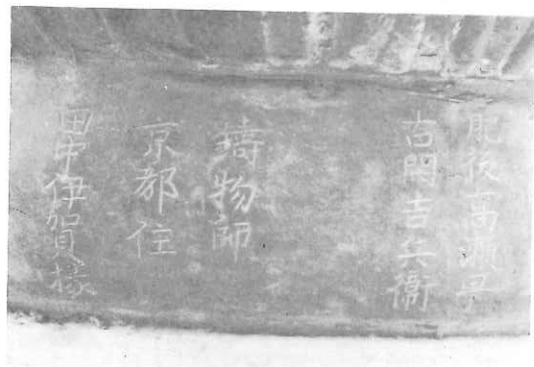 肥後高瀬
古閑吉兵衛
鋳物師
京都住
田中伊賀様